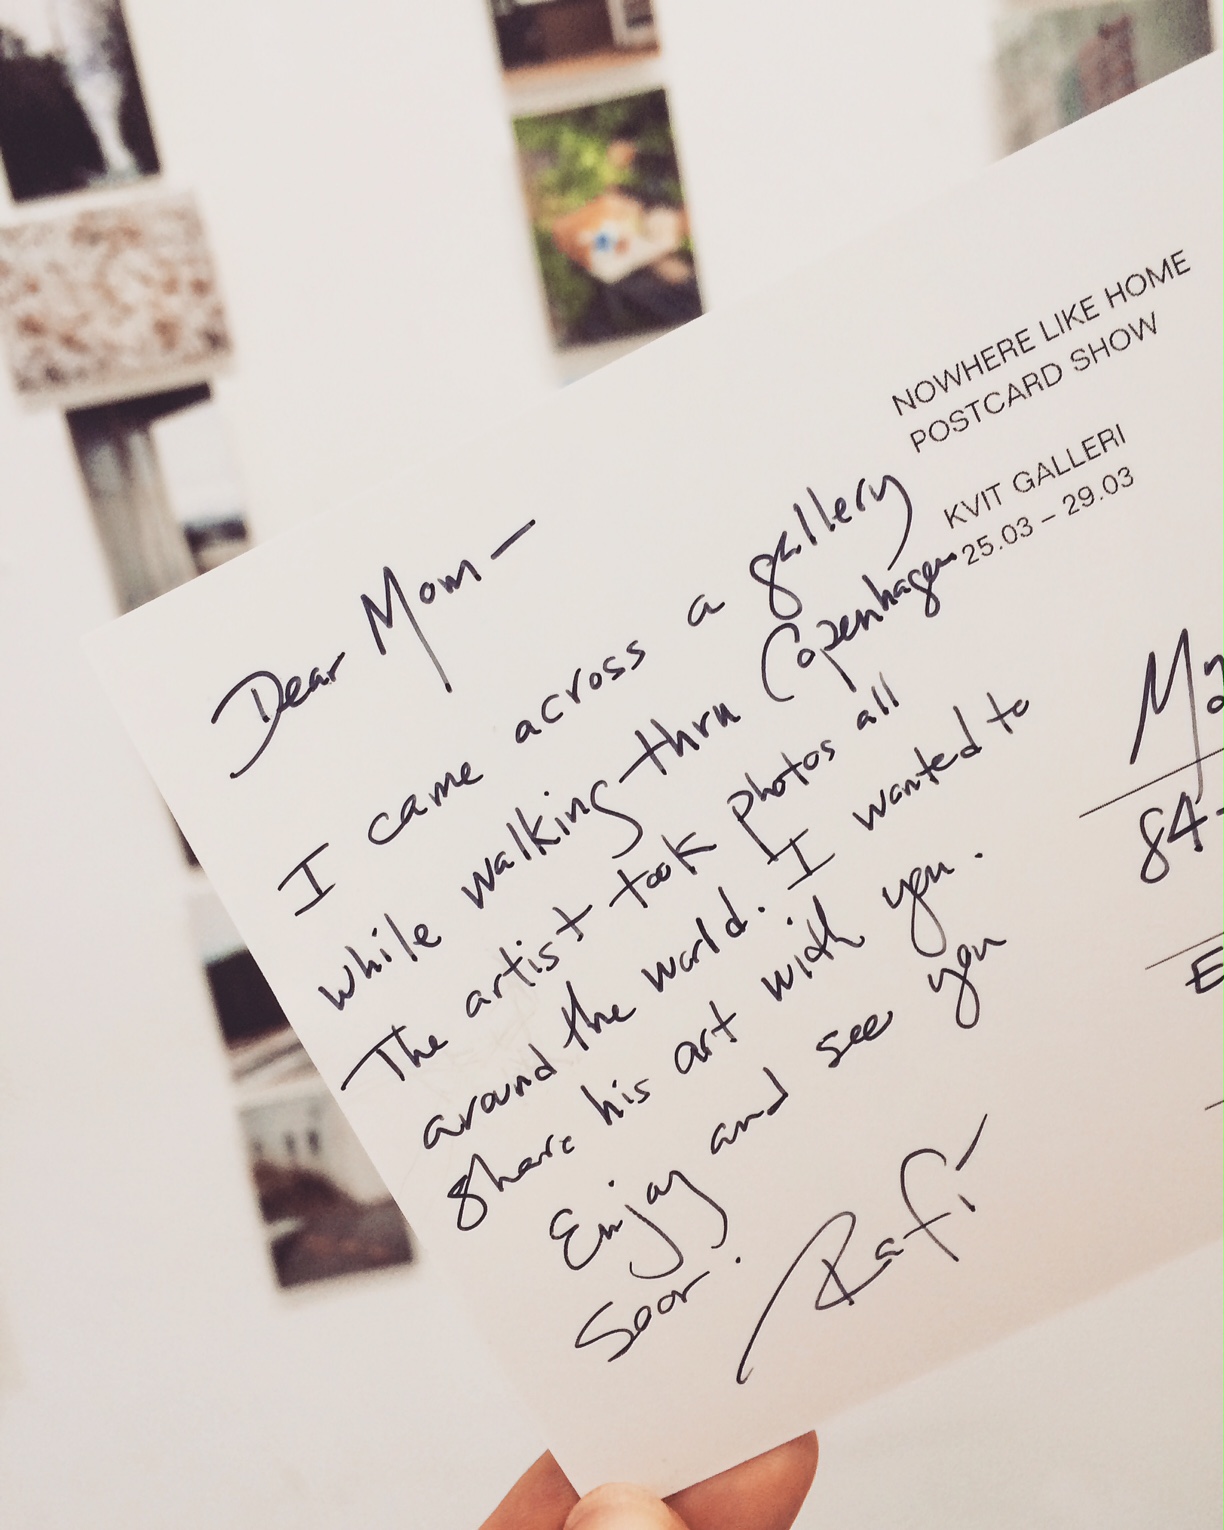 NOWHERE LIKE HOME
POSTCARD SHOW
KVIT GALLERI
25.03 – 29.03
Dear Mom —
I came across a gallery
while walking thru Copenhagen.
The artist took photos all
around the world. I wanted to
share his art with you.
Enjoy and see you
soon.
Rafi
84-
E